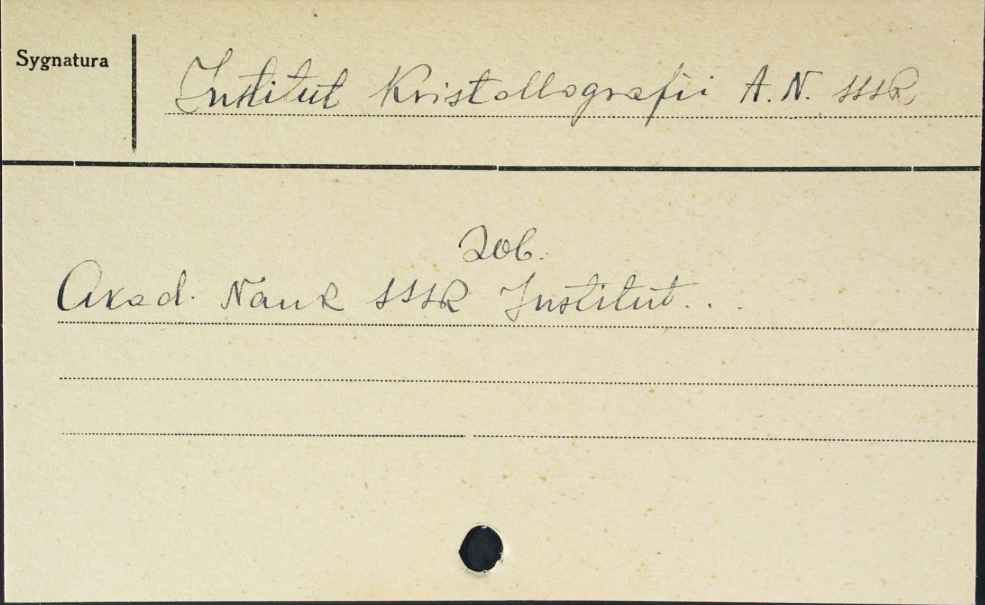 Sygnatura
Institut Kristallografii A.N. SSSR
Zob.
Akad. Nauk SSSR Institut...